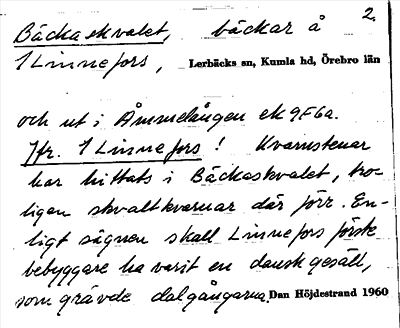 2.
Bäckaskvalet, bäckar å
1 Linnefors, Lerbäcks sn, Kumla hd, Örebro län
och ut i Åmmelången ek 9F6a.
Jfr. 1 Linnefors! Kvarnstenar
har hittats i Bäckaskvalet, tro-
ligen skvaltkvarnar där förr. En-
ligt sägnen skall Linnefors förste
bebyggare ha varit en dansk gesäll,
som grävde dalgångarna. Dan Höjdestrand 1960